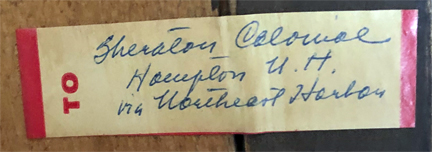 TO
Sheraton Colonial
Hampton N. H.
via Northeast Harbor